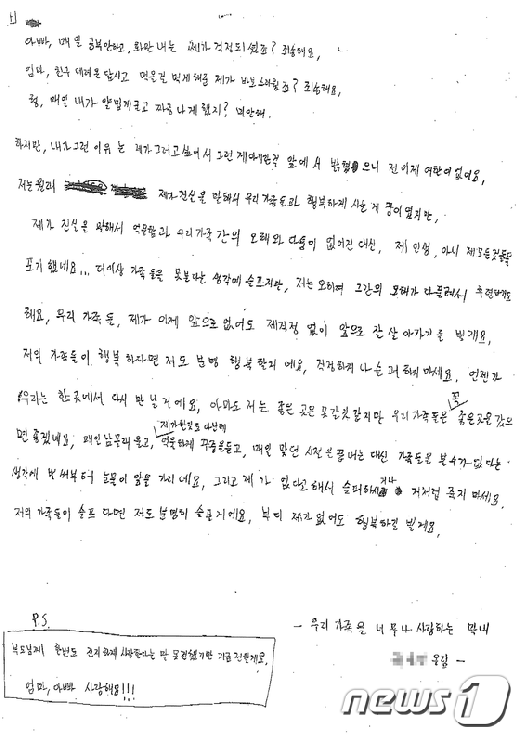 아빠, 매일 공부안하고, 화만내는 제가 걱정되셨죠? 죄송해요,
엄마, 친구 데려온답시고 먹을걸 먹게해준 제가 바보스러웠죠? 죄송해요,
형, 매번 내가 얄밉게굴고 짜증나게 했지? 미안해.
하지만, 내가그런이유는 제가그러고싶어서 그런게아니란걸 앞에서 밝혔으니 전 이제 여한이없어요,
저는원래 제가진실을 말해서 우리가족들과 행복하게 사는게 꿈이였지만,
제가 진실을 말해서 억울함과 우리가족 간의 오해와 다툼이 없어진 대신, 제 인생, 아니 제 모든것들을
포기했네요... 더이상 가족들을 못본다는 생각에 슬프지만, 저는 오히려 그간의 오해가 다 풀려서 후련하기도
해요, 우리 가족들, 제가 이제 앞으로 없어도 제걱정 없이 앞으로 잘 살아가기를 빌게요,
저의 가족들이 행복하다면 저도 분명 행복할거예요, 걱정하거나 너무 슬퍼하지 마세요, 언젠가
우리는 한 곳에서 다시 만날거에요, 아마도 저는 좋은 곳은 못갈것같지만 우리가족들은 꼭 좋은곳을갔으
면 좋겠네요, 매일 남몰래울고, 제가한것도 아닌데 억울하게 꾸중을듣고, 매일 맞던 시절을 끝내는 대신 가족들을 볼수가없다는
생각에 벌써부터 눈물이 앞을 가리네요, 그리고 제가 없다고해서 슬퍼하시거나 저처럼 죽지마세요.
저의 가족들이 슬프다면 저도 분명히 슬플거예요, 부디 제가없어도 행복하길 빌게요,
- 우리 가족을 너무나 사랑하는 막내
올림 -
P.S.
부모님께 한번도 진지하게 사랑한다는 말 못전했지만 지금 전할게요.
엄마, 아빠 사랑해요!!!
news1